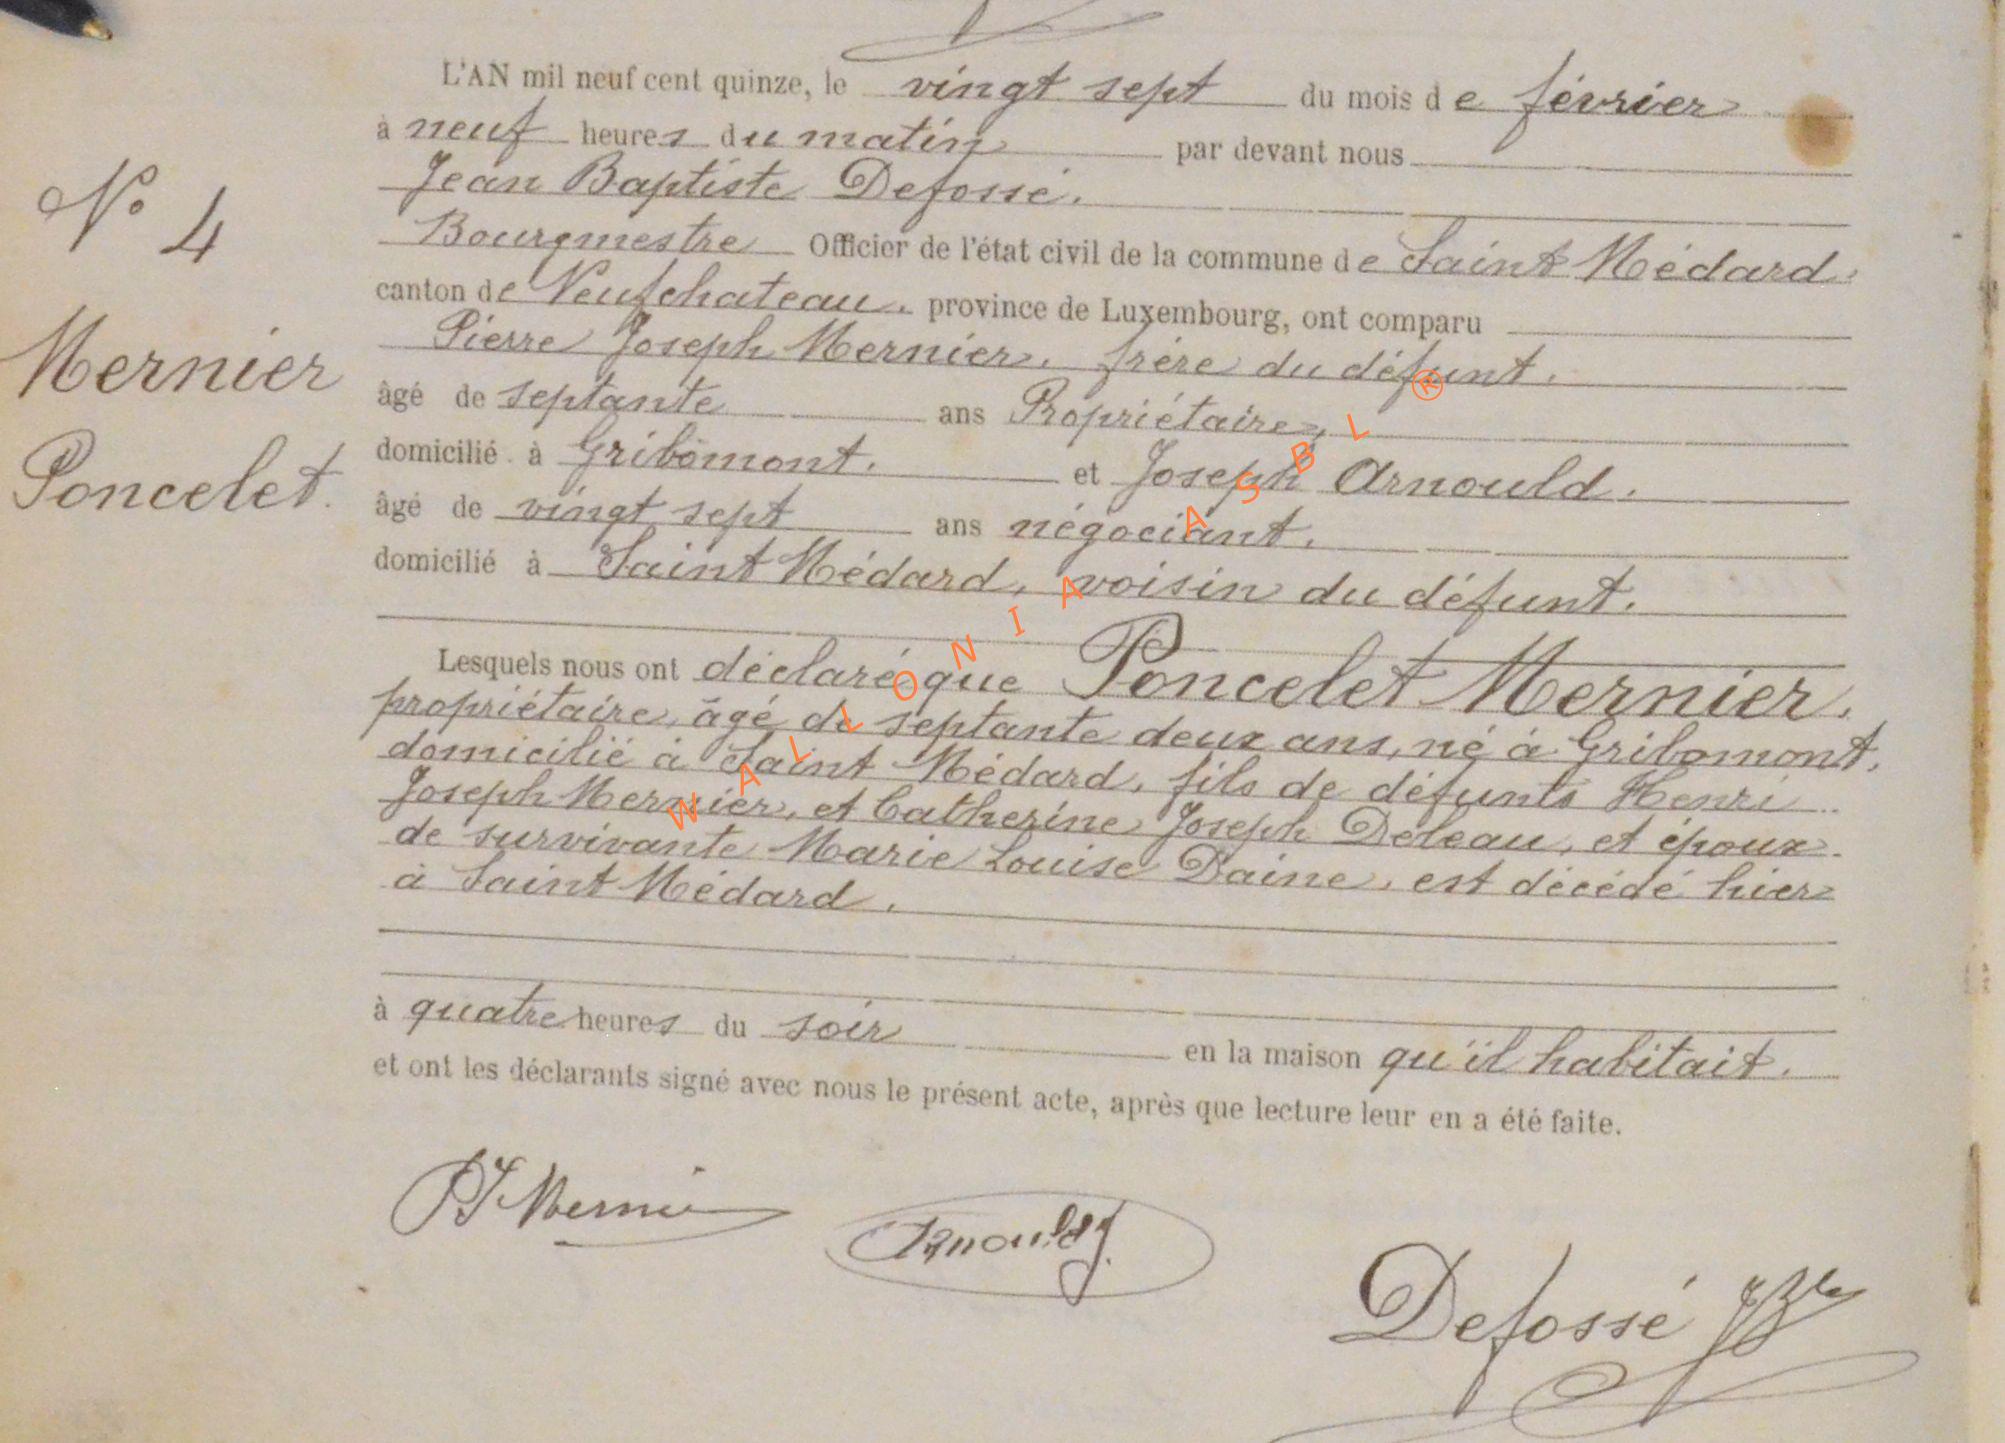 L'AN mil neuf cent quinze, le vingt sept du mois de février
à neuf heures du matin par devant nous
Jean Baptiste Defossé.
N° 4
Bourgmestre Officier de l'état civil de la commune de Saint Médard.
canton de Neufchateau. province de Luxembourg, ont comparu
Mernier
Pierre Joseph Mernier. frère du défunt.
âgé de septante ans Propriétaire,
domicilié à Gribomont. et Joseph Arnould.
Poncelet.
âgé de vingt sept ans négociant.
domicilié à Saint Médard, voisin du défunt.
Lesquels nous ont déclaré que Poncelet Mernier.
propriétaire, âgé de septante deux ans, né à Gribomont.
domicilié à Saint Médard, fils de défunts Henri
Joseph Mernier, et Catherine Joseph Deleau, et époux
de survivante Marie Louise Daine, est décédé hier
à Saint Médard.
à quatre heures du soir en la maison qu'il habitait.
et ont les déclarants signé avec nous le présent acte, après que lecture leur en a été faite.
PJ Mernier
Arnould J.
Defossé JBte
WALLONIA ASBL ®